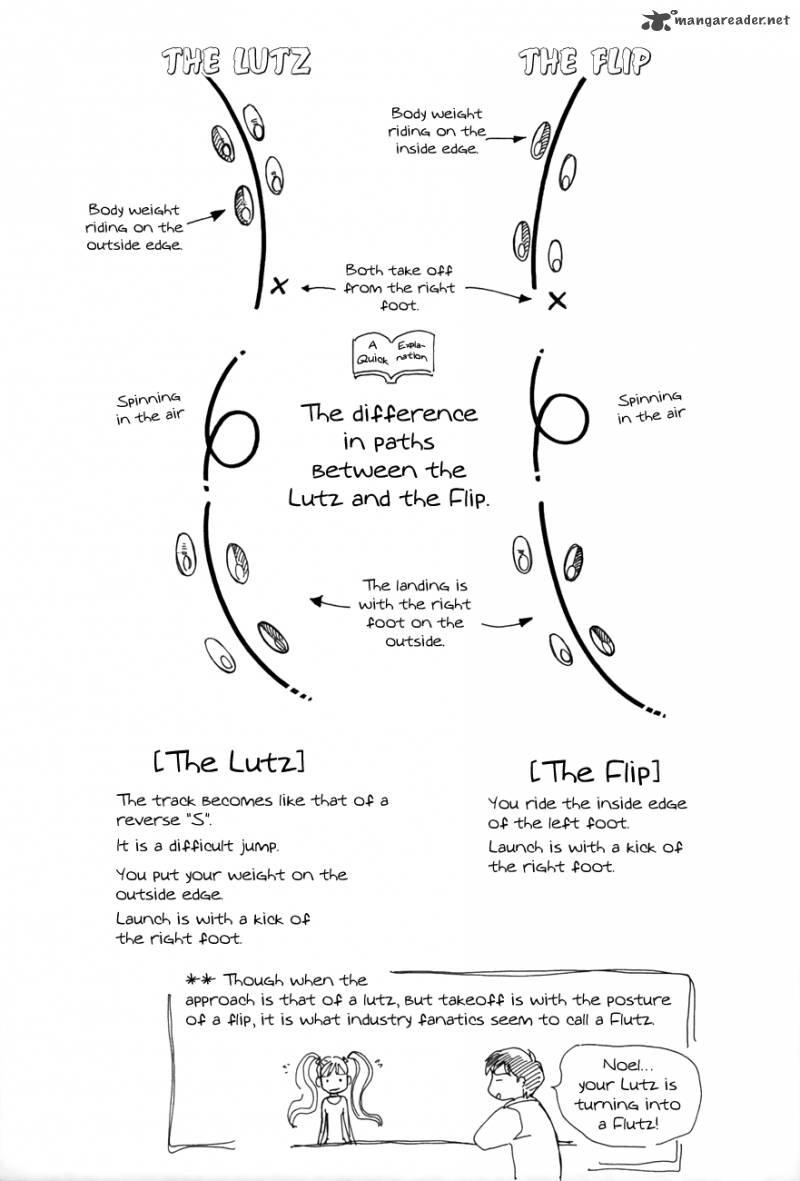 mangareader.net
THE LUTZ
THE FLIP
Body weight
riding on the
inside edge.
Body weight
riding on the
outside edge.
Both take off
from the right
foot.
A
Quick
Expla-
nation
Spinning
in the air
The difference
in paths
between the
Lutz and the Flip.
Spinning
in the air
The landing is
with the right
foot on the
outside.
[The Lutz]
The track becomes like that of a
reverse "S".
It is a difficult jump.
You put your weight on the
outside edge.
Launch is with a kick of
the right foot.
[The Flip]
You ride the inside edge
of the left foot.
Launch is with a kick of
the right foot.
** Though when the
approach is that of a lutz, but takeoff is with the posture
of a flip, it is what industry fanatics seem to call a Flutz.
Noel...
your Lutz is
turning into
a Flutz!